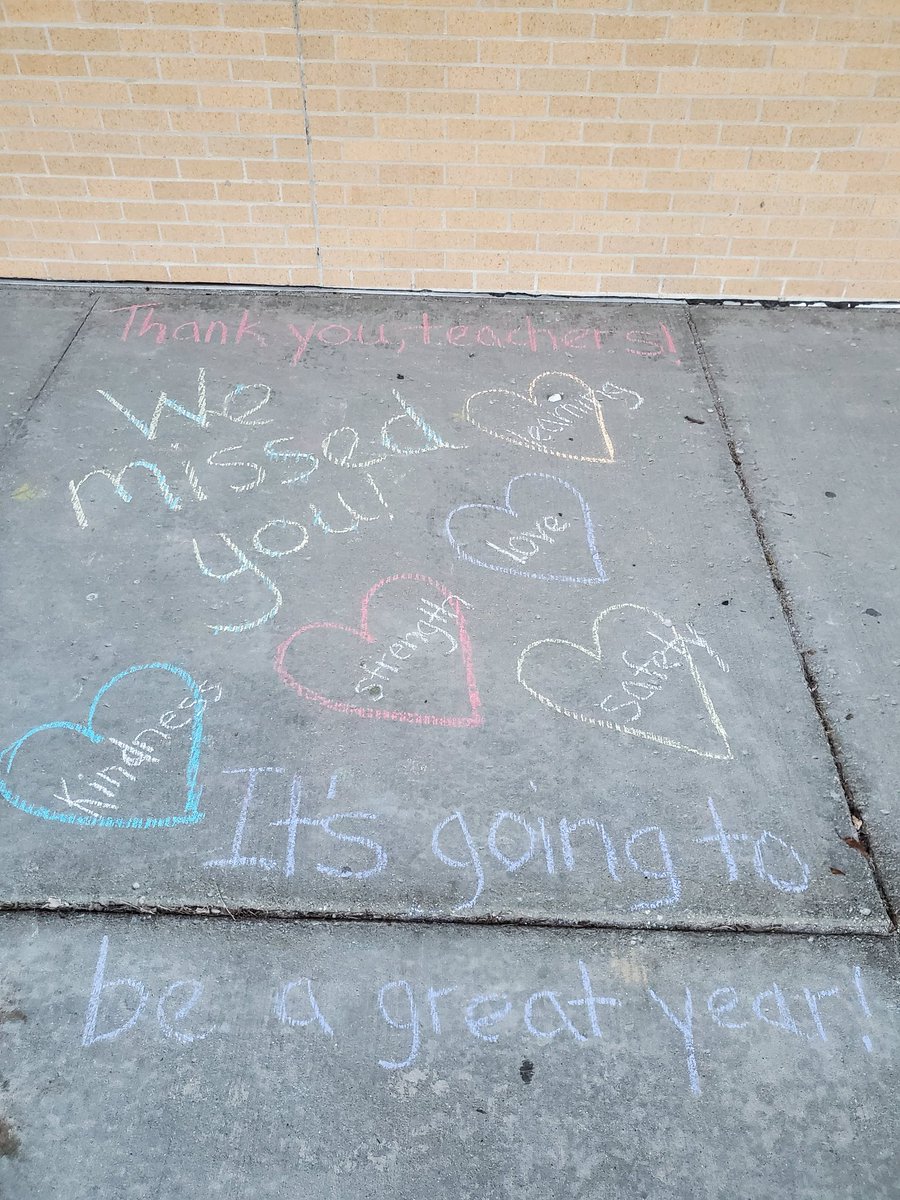 Thank you, teachers!
We
missed
you
learning
love
Strength
Safety
Kindness
It's going to
be a great year!